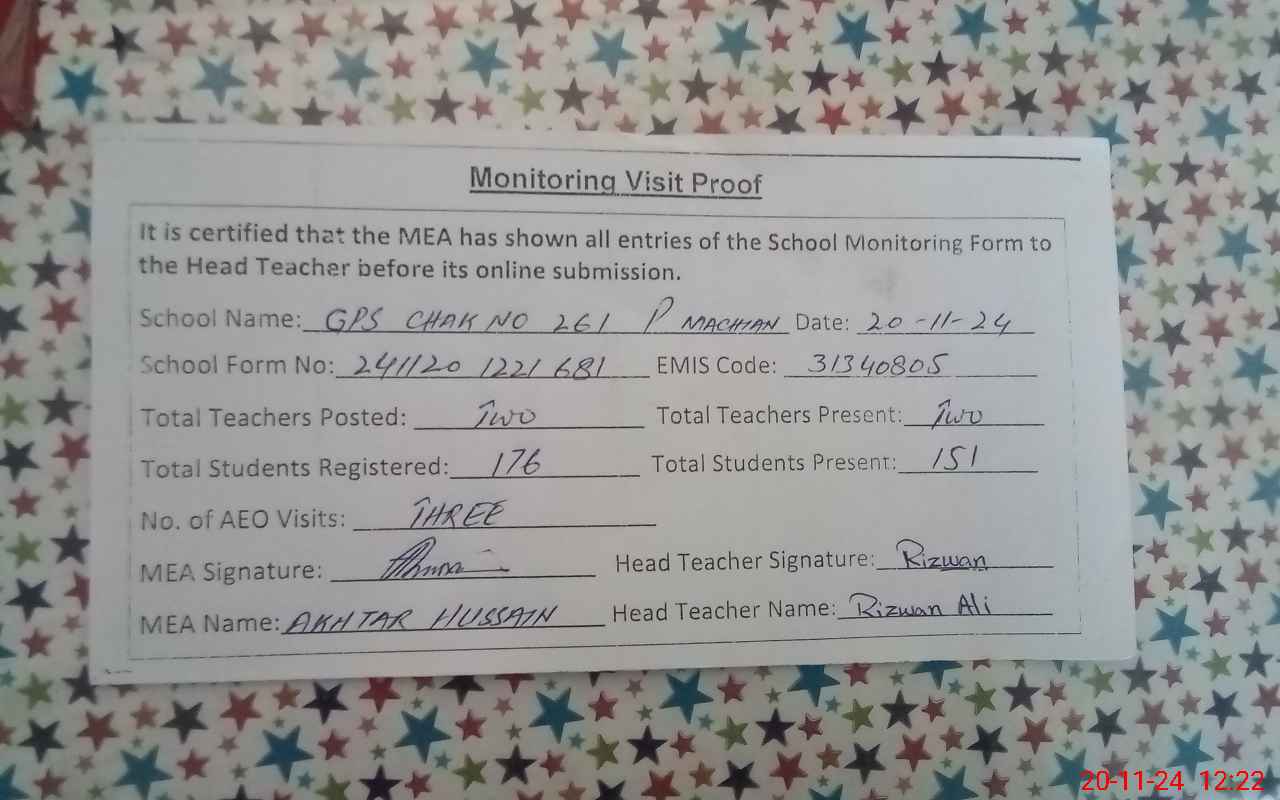 Monitoring Visit Proof
It is certified that the MEA has shown all entries of the School Monitoring Form to
the Head Teacher before its online submission.
School Name: GPS CHAK NO 261 P MACHIAN Date: 20-11-24
School Form No: 241120 1221 681 EMIS Code: 31340805
Total Teachers Posted: Two Total Teachers Present: Two
Total Students Registered: 176 Total Students Present: 151
No. of AEO Visits: THREE
MEA Signature: Head Teacher Signature: Rizwan
MEA Name: AKHTAR HUSSAIN Head Teacher Name: Rizwan Ali
20-11-24 12:22